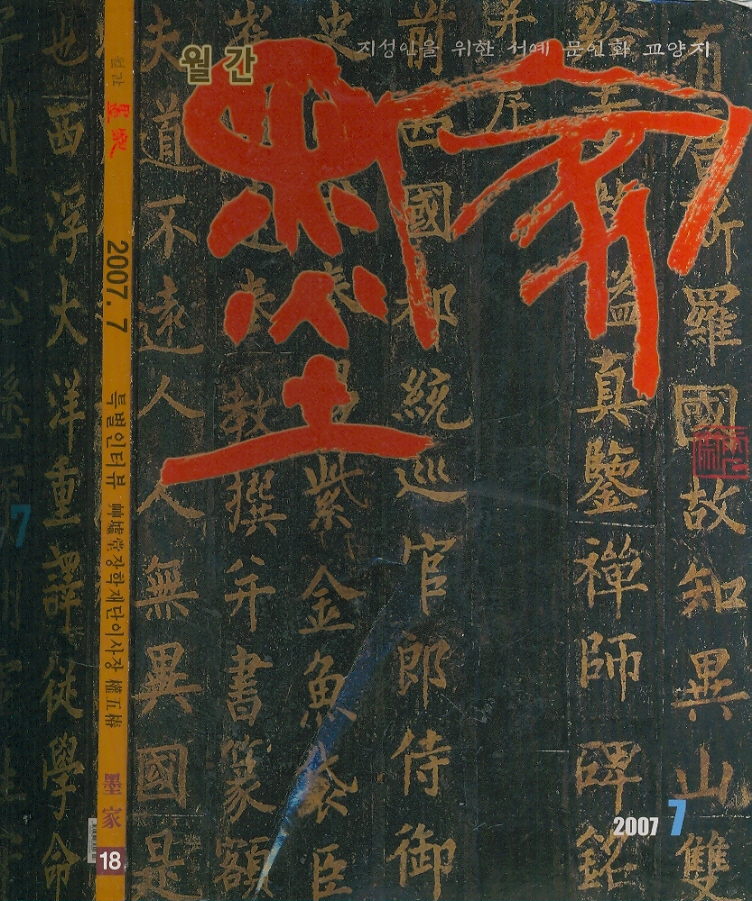 월간
지성인을 위한 서예 문인화 교양지
墨家
有唐新羅國故知異山雙
谿寺教謚真鑒禪師碑銘
并序
前西國都統巡官郎侍御
史賜紫金魚袋臣
奉教撰并書篆額
夫道不遠人人無異國是
也西浮大洋重譯從學命
2007 7
월간 墨家
2007. 7
특별인터뷰 장학재단이사장 權五
墨家
18
7